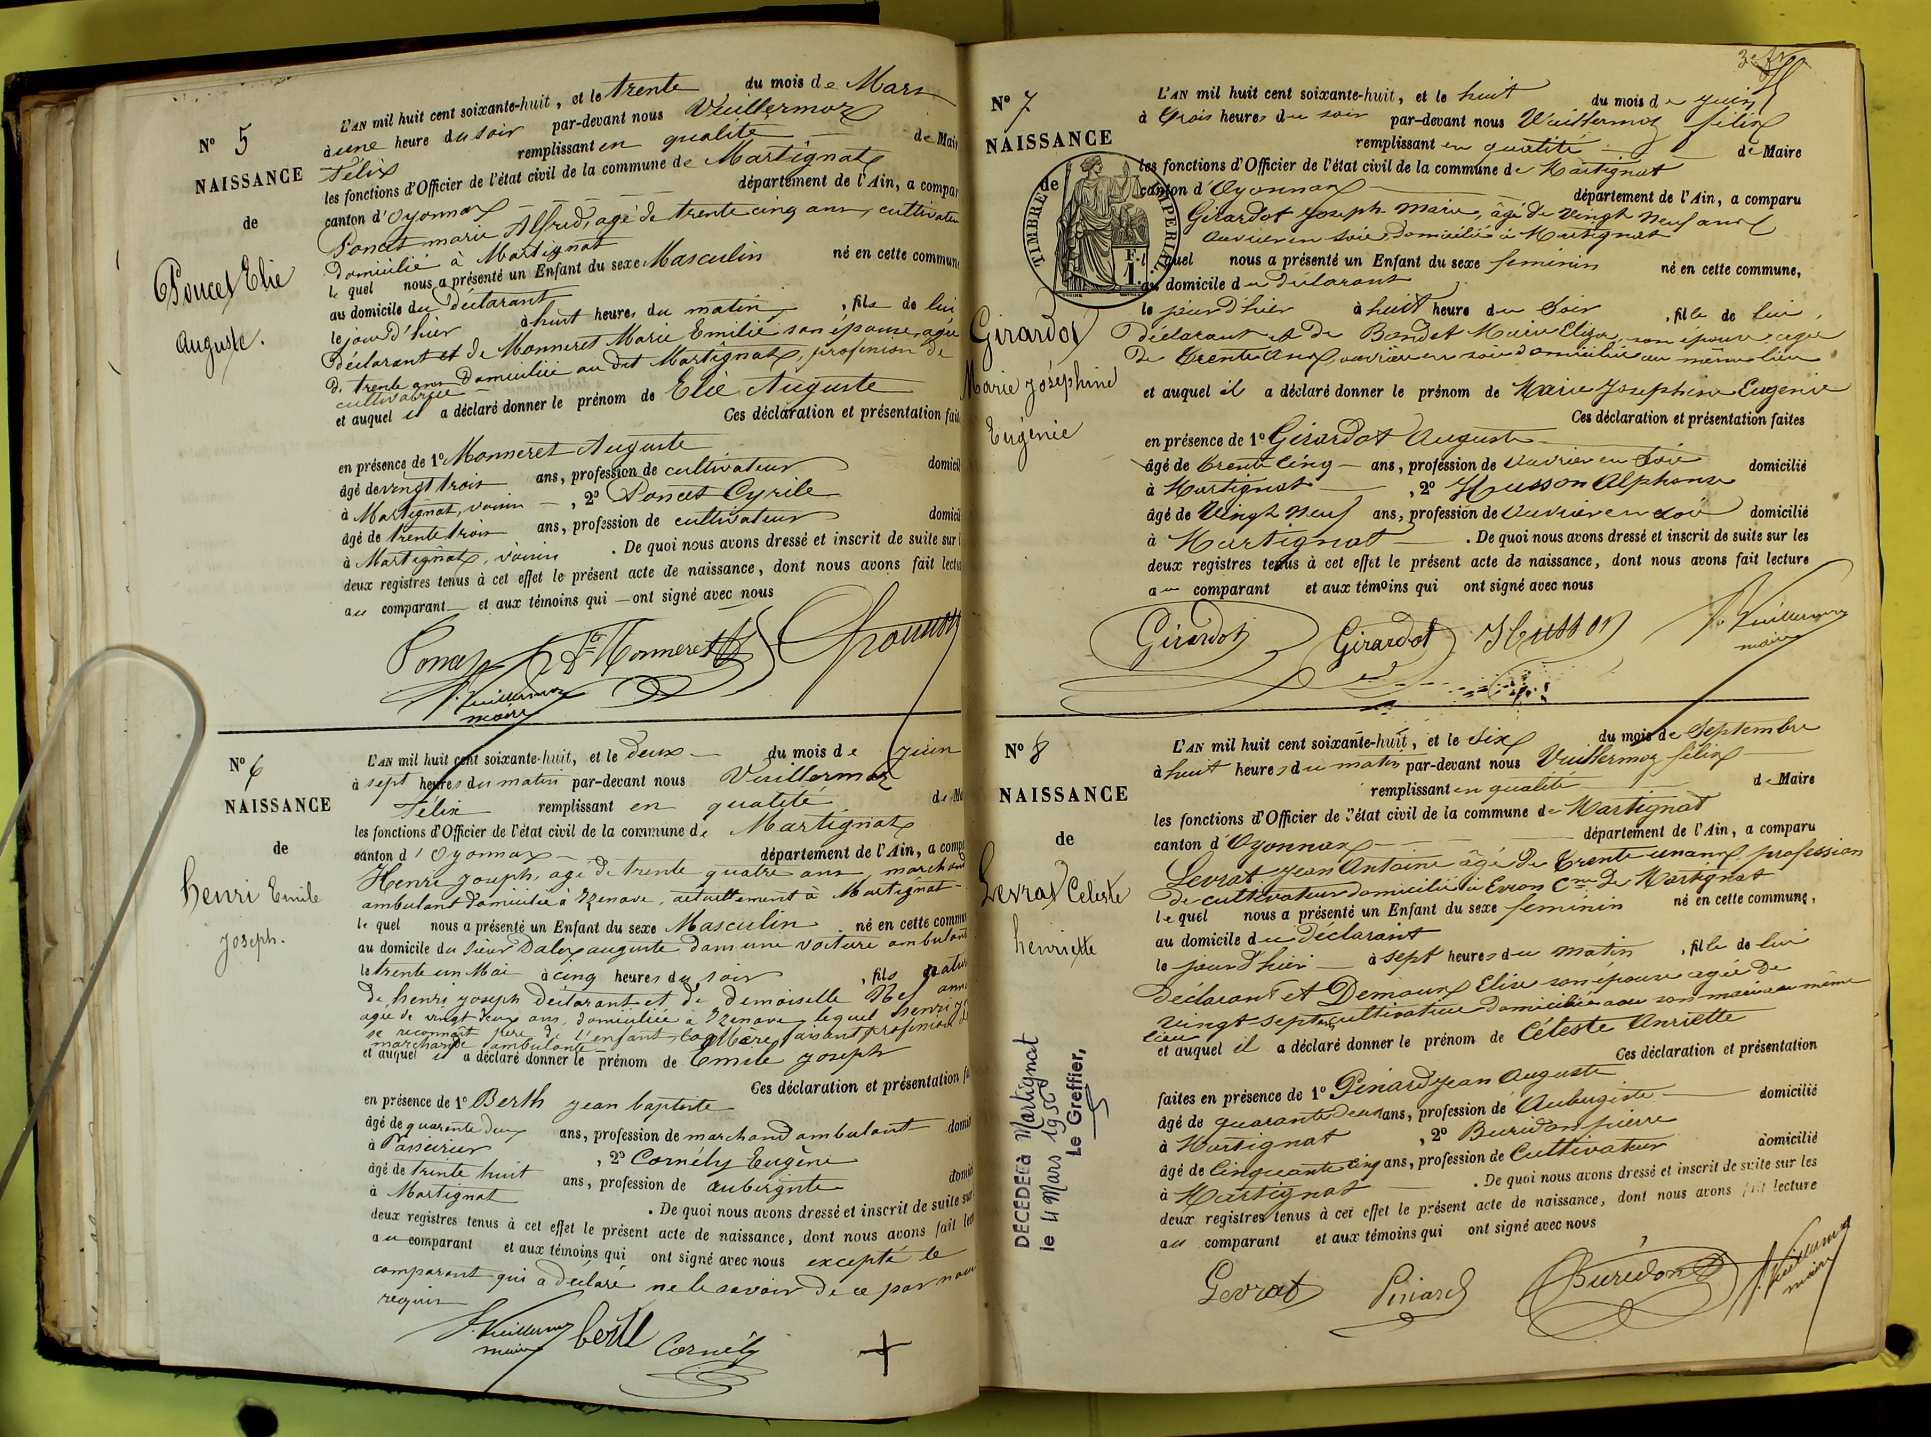 N° 5
NAISSANCE
de
Poncet Elie
Auguste.
L'AN mil huit cent soixante-huit, et le trente du mois de Mars
à une heure du soir par-devant nous Vuillermoz
Félix remplissant en qualité de Mair
les fonctions d'Officier de l'état civil de la commune de Martignat
canton d'Oyonnax département de l'Ain, a compar
Poncet marie Alfred, agé de trente cinq ans, cultivateur
domicilié à Martignat
le quel nous a présenté un Enfant du sexe Masculin né en cette commune
au domicile du Déclarant
le jour d'hier à huit heures du matin, fils de lui
déclarant et de Monneret Marie Emilie son épouse, agée
de trente ans Domiciliée au dit Martignat, profession de
cultivatrice
et auquel il a déclaré donner le prénom de Elie Auguste
Ces déclaration et présentation fait
en présence de 1° Monneret Auguste
âgé de vingt trois ans, profession de cultivateur domicil
à Martignat, voisin, 2° Poncet Cyrile
âgé de trente trois ans, profession de cultivateur domicil
à Martignat, voisin. De quoi nous avons dressé et inscrit de suite sur l
deux registres tenus à cet effet le présent acte de naissance, dont nous avons fait lectu
au comparant et aux témoins qui ont signé avec nous
Poncet Monneret
f. Vuillermoz
maire
N° 6
NAISSANCE
de
henri Emile
Joseph.
L'AN mil huit cent soixante-huit, et le deux du mois de juin
à sept heures du matin par-devant nous Vuillermoz
Félix remplissant en qualité de Ma
les fonctions d'Officier de l'état civil de la commune de Martignat
canton d'Oyonnax département de l'Ain, a compa
Henri Joseph, agé de trente quatre ans, marchand
ambulant domicilié à Izenave, actuellement à Martignat
le quel nous a présenté un Enfant du sexe Masculin né en cette commu
au domicile du Sieur Dalex auguste dans une voiture ambulant
le trente un Mai à cinq heures du soir, fils natur
de henri joseph déclarant et de demoiselle
agée de vingt deux ans, domiciliée à Izenave lequel henri
se reconnaît père de l'enfant, la Mère faisant profession de
marchande ambulante
et auquel il a déclaré donner le prénom de Emile joseph
Ces déclaration et présentation fa
en présence de 1° Berth jean baptiste
âgé de quarante deux ans, profession de marchand ambulant domi
à, 2° Cornély Eugène
âgé de trente huit ans, profession de aubergiste domic
à Martignat. De quoi nous avons dressé et inscrit de suite sur
deux registres tenus à cet effet le présent acte de naissance, dont nous avons fait lec
au comparant et aux témoins qui ont signé avec nous excepté le
comparant qui a déclaré ne le savoir de ce par nous
requis
f. Vuillermoz
maire
berth Cornély
N° 7
NAISSANCE
de
TIMBRE IMPERIAL
Girardot
Marie Joséphine
Eugénie
L'AN mil huit cent soixante-huit, et le huit du mois de juin
à trois heures du soir par-devant nous Vuillermoz félix
remplissant en qualité de Maire
les fonctions d'Officier de l'état civil de la commune de Martignat
canton d'Oyonnax département de l'Ain, a comparu
Girardot Joseph Marie, âgé de vingt neuf ans
ouvrier en soie, domicilié à Martignat
le quel nous a présenté un Enfant du sexe feminin né en cette commune,
au domicile du déclarant
le jour d'hier à huit heure du soir, fille de lui,
déclarant et de Bondet Marie Eliza, son épouse agée
de trente ans, ouvrière en soie domiciliée au même lieu
et auquel il a déclaré donner le prénom de Marie Josephine Eugenie
Ces déclaration et présentation faites
en présence de 1° Girardot Auguste
âgé de trente cinq ans, profession de ouvrier en soie domicilié
à Martignat, 2° Husson Alphonse
âgé de vingt neuf ans, profession de ouvrier en soie domicilié
à Martignat. De quoi nous avons dressé et inscrit de suite sur les
deux registres tenus à cet effet le présent acte de naissance, dont nous avons fait lecture
au comparant et aux témoins qui ont signé avec nous
Girardot Girardot Husson f. Vuillermoz
maire
N° 8
NAISSANCE
de
Levrat Celeste
henriette
DÉCÉDÉE à Martignat
le 4 Mars 1956
Le Greffier,
L'AN mil huit cent soixante-huit, et le six du mois de Septembre
à huit heures du matin par-devant nous Vuillermoz félix
remplissant en qualité de Maire
les fonctions d'Officier de l'état civil de la commune de Martignat
canton d'Oyonnax département de l'Ain, a comparu
Levrat Jean Antoine âgé de trente un ans, profession
de cultivateur domicilié à Evron Cne de Martignat
le quel nous a présenté un Enfant du sexe feminin né en cette commune,
au domicile du déclarant
le jour d'hier à sept heures du matin, fille de lui
déclarant et Demoux Elise son épouse agée de
vingt-sept, cultivatrice domiciliée avec son mari au même
lieu
et auquel il a déclaré donner le prénom de Céleste Anriette
Ces déclaration et présentation
faites en présence de 1° Pinard jean Auguste
âgé de quarante deux ans, profession de Aubergiste domicilié
à Martignat, 2° Buridon pierre
âgé de Cinquante cinq ans, profession de Cultivateur domicilié
à Martignat. De quoi nous avons dressé et inscrit de suite sur les
deux registres tenus à cet effet le présent acte de naissance, dont nous avons fait lecture
au comparant et aux témoins qui ont signé avec nous
Levrat Pinard Buridon f. Vuillermoz
maire